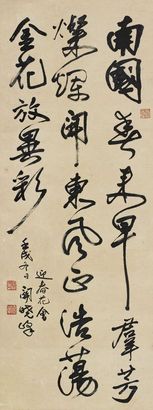 南國春来早羣芳
燦爛開東风正浩蕩
金花放異彩
迎春花會
壬戌冬日關曉峰